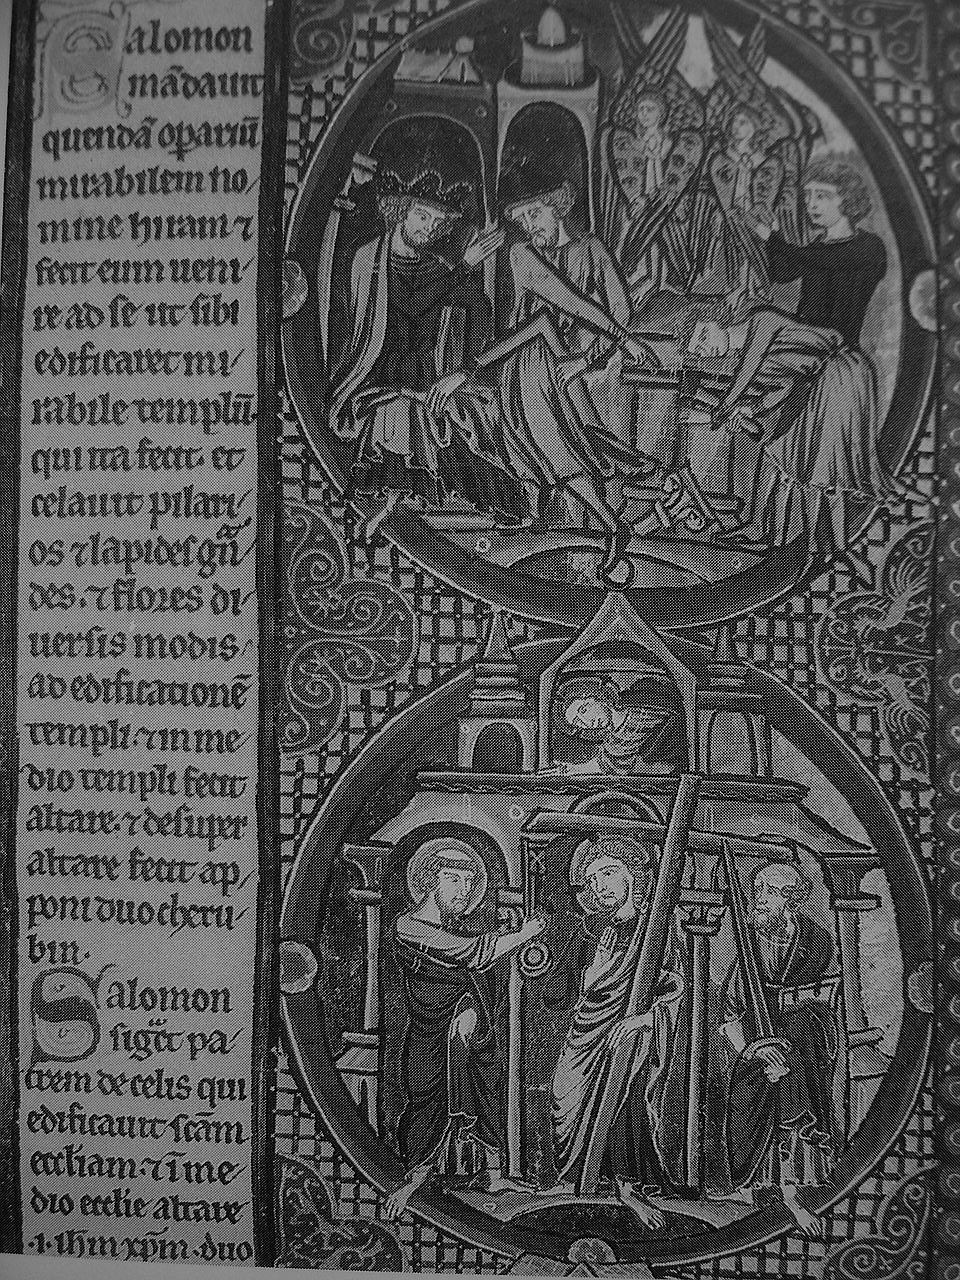 Salomon
mādauit
quendā opariū
mirabilem no/
mine hiram ⁊
fecit eum ueni/
re ad se ut sibi
edificaret mi/
rabile templū
qui ita fecit. et
celauit pilari/
os ⁊ lapides gn̄
des. ⁊ flores di/
uersis modis
ad edificationē
templi. ⁊ in me
dio templi fecit
altare. ⁊ desuper
altare fecit ap/
poni duo cheru/
bin.
Salomon
sig̃t pa/
trem de celis qui
edificauit scām
eccl̄iam. ⁊ ī me/
dio ecclie altare
.i. ih̄m xp̄m. duo